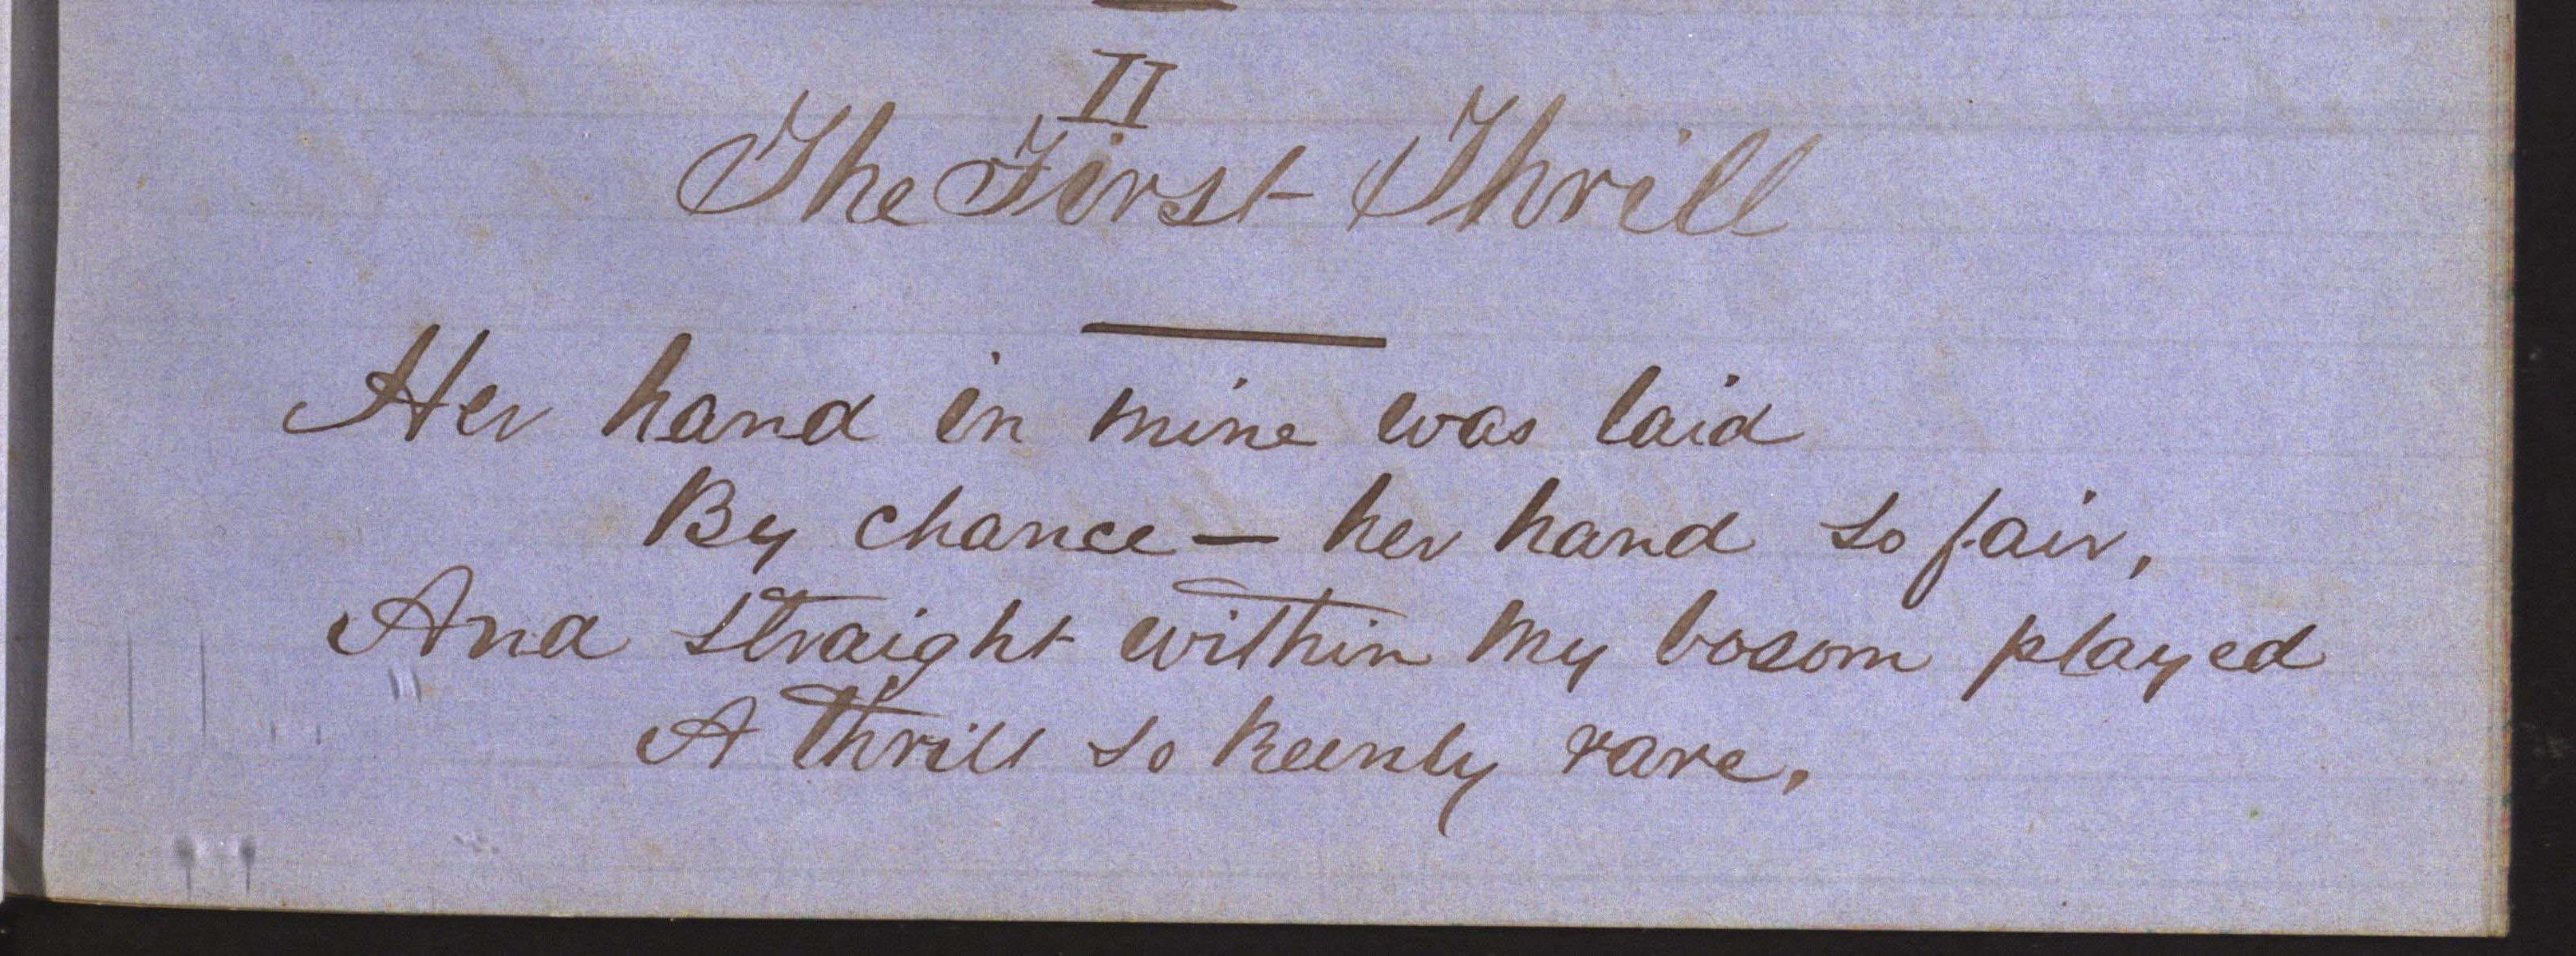 II
The First Thrill
Her hand in mine was laid
By chance — her hand so fair,
And straight within my bosom played
A thrill so keenly rare.